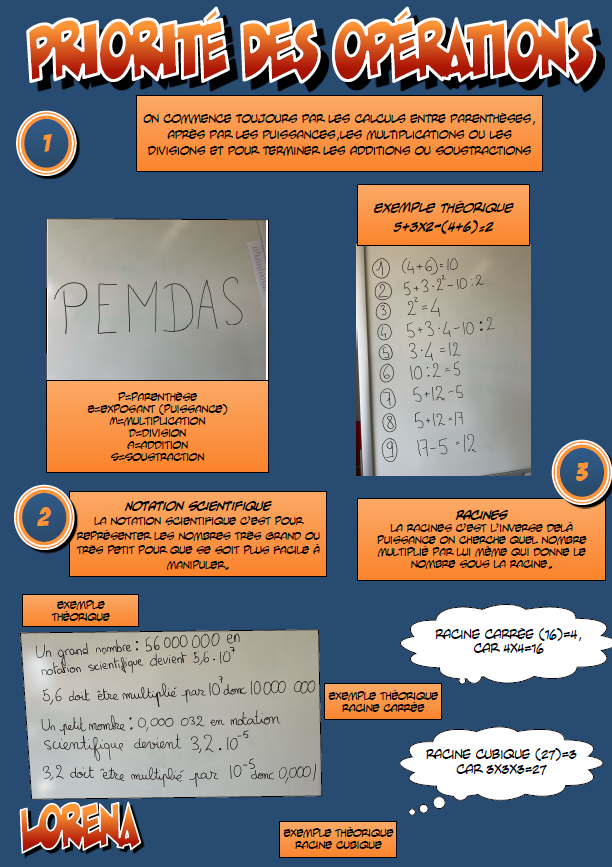 PRIORITÉ DES OPÉRATIONS
1
ON COMMENCE TOUJOURS PAR LES CALCULS ENTRE PARENTHÈSES,
APRÈS PAR LES PUISSANCES,LES MULTIPLICATIONS OU LES
DIVISIONS ET POUR TERMINER LES ADDITIONS OU SOUSTRACTIONS
PEMDAS
P=PARENTHÈSE
E=EXPOSANT (PUISSANCE)
M=MULTIPLICATION
D=DIVISION
A=ADDITION
S=SOUSTRACTION
EXEMPLE THÉORIQUE
5+3X2-(4+6)÷2
1 (4+6)=10
2 5+3·2²-10:2
3 2²=4
4 5+3·4-10:2
5 3·4=12
6 10:2=5
7 5+12-5
8 5+12=17
9 17-5=12
2
NOTATION SCIENTIFIQUE
LA NOTATION SCIENTIFIQUE C'EST POUR
REPRÉSENTER LES NOMBRES TRÈS GRAND OU
TRÈS PETIT POUR QUE SE SOIT PLUS FACILE À
MANIPULER.
EXEMPLE
THÉORIQUE
Un grand nombre : 56 000 000 en
notation scientifique devient 5,6·10⁷
5,6 doit être multiplié par 10⁷ donc 10 000 000
Un petit nombre : 0,000 032 en notation
scientifique devient 3,2·10⁻⁵
3,2 doit être multiplié par 10⁻⁵ donc 0,0001
3
RACINES
LA RACINES C'EST L'INVERSE DELÀ
PUISSANCE ON CHERCHE QUEL NOMBRE
MULTIPLIÉ PAR LUI MÊME QUI DONNE LE
NOMBRE SOUS LA RACINE.
RACINE CARRÉE (16)=4,
CAR 4X4=16
EXEMPLE THÉORIQUE
RACINE CARRÉE
RACINE CUBIQUE (27)=3
CAR 3X3X3=27
EXEMPLE THÉORIQUE
RACINE CUBIQUE
LORENA